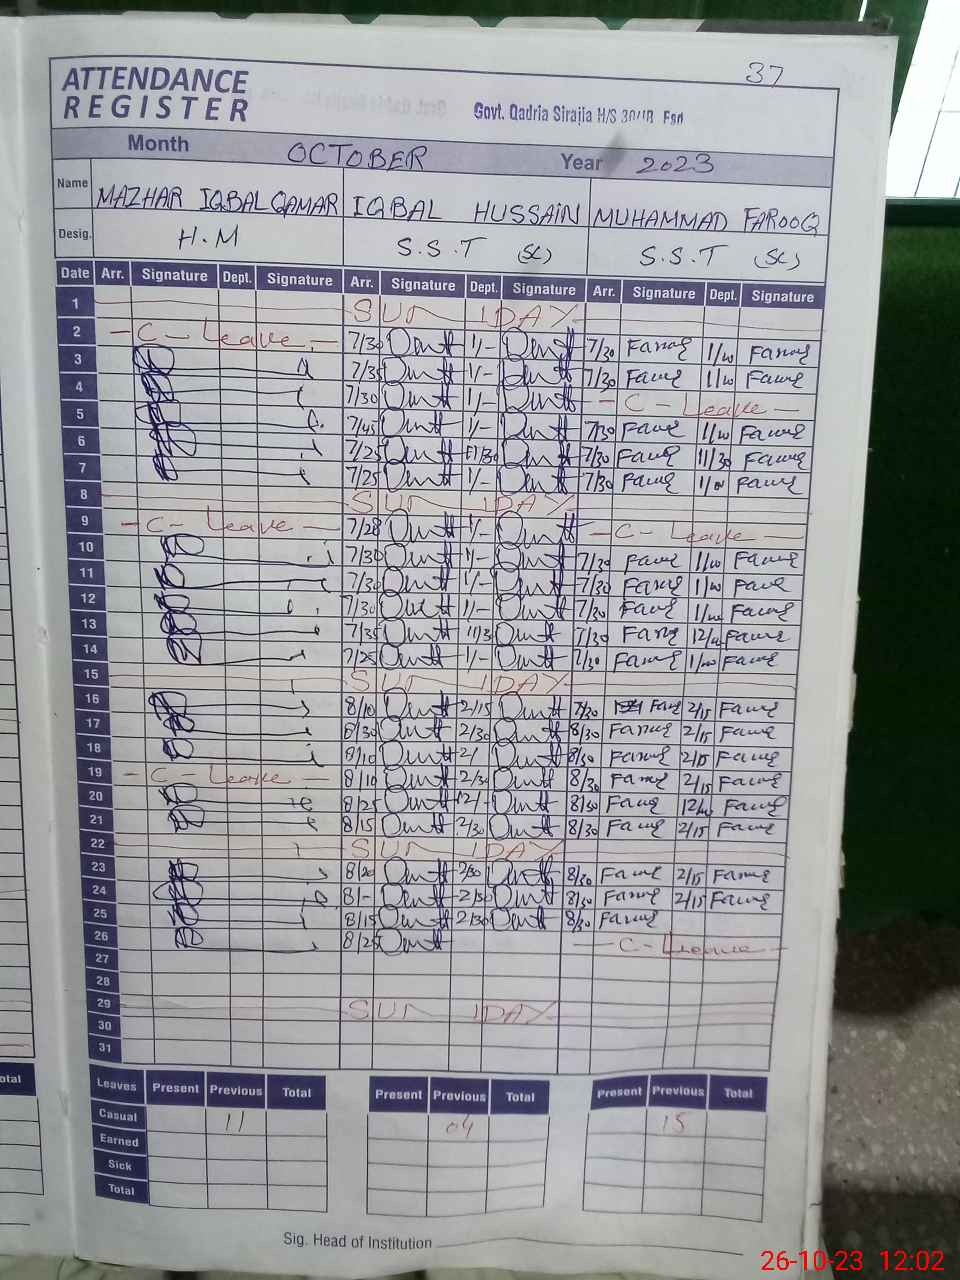 37
ATTENDANCE
REGISTER
Govt. Qadria Sirajia H/S 30/JB Fsd
Month OCTOBER Year 2023
Name MAZHAR IQBAL QAMAR IQBAL HUSSAIN MUHAMMAD FAROOQ
Desig. H.M S.S.T (SC) S.S.T (SC)
Date Arr. Signature Dept. Signature Arr. Signature Dept. Signature Arr. Signature Dept. Signature
1 SUN DAY
2 - C - Leave - 7/30 1/- 7/30 Farooq 1/00 Farooq
3 7/35 1/- 7/30 Farooq 1/00 Farooq
4 7/30 1/- - C - Leave -
5 7/45 1/- 7/30 Farooq 1/00 Farooq
6 7/25 11/30 7/30 Farooq 11/30 Farooq
7 7/25 1/- 7/30 Farooq 1/00 Farooq
8 SUN DAY
9 - C - Leave - 7/28 1/- - C - Leave -
10 7/30 1/- 7/30 Farooq 1/00 Farooq
11 7/30 1/- 7/30 Farooq 1/00 Farooq
12 7/30 1/- 7/30 Farooq 1/00 Farooq
13 7/35 11/3 7/30 Farooq 12/00 Farooq
14 7/25 1/- 7/30 Farooq 1/00 Farooq
15 SUN DAY
16 8/10 2/15 7/30 Farooq 2/15 Farooq
17 8/30 2/30 8/30 Farooq 2/15 Farooq
18 8/10 2/ 8/30 Farooq 2/15 Farooq
19 - C - Leave - 8/10 2/30 8/30 Farooq 2/15 Farooq
20 8/25 12/- 8/30 Farooq 12/00 Farooq
21 8/15 2/30 8/30 Farooq 2/15 Farooq
22 SUN DAY
23 8/20 2/30 8/30 Farooq 2/15 Farooq
24 8/- 2/30 8/30 Farooq 2/15 Farooq
25 8/15 2/30 8/30 Farooq
26 8/25 - C - Leave -
27
28
29 SUN DAY
30
31
Leaves Present Previous Total Present Previous Total Present Previous Total
Casual 11 04 15
Earned
Sick
Total
Sig. Head of Institution
26-10-23 12:02